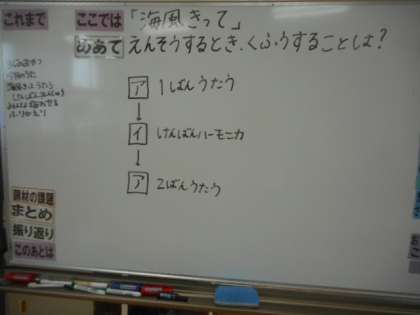 これまで
ここでは
「海風きって」
めあて
えんそうするとき、くふうすることは?
ア 1ばんうたう
イ けんばんハーモニカ
ア 2ばんうたう
題材の課題
まとめ
振り返り
このあとは